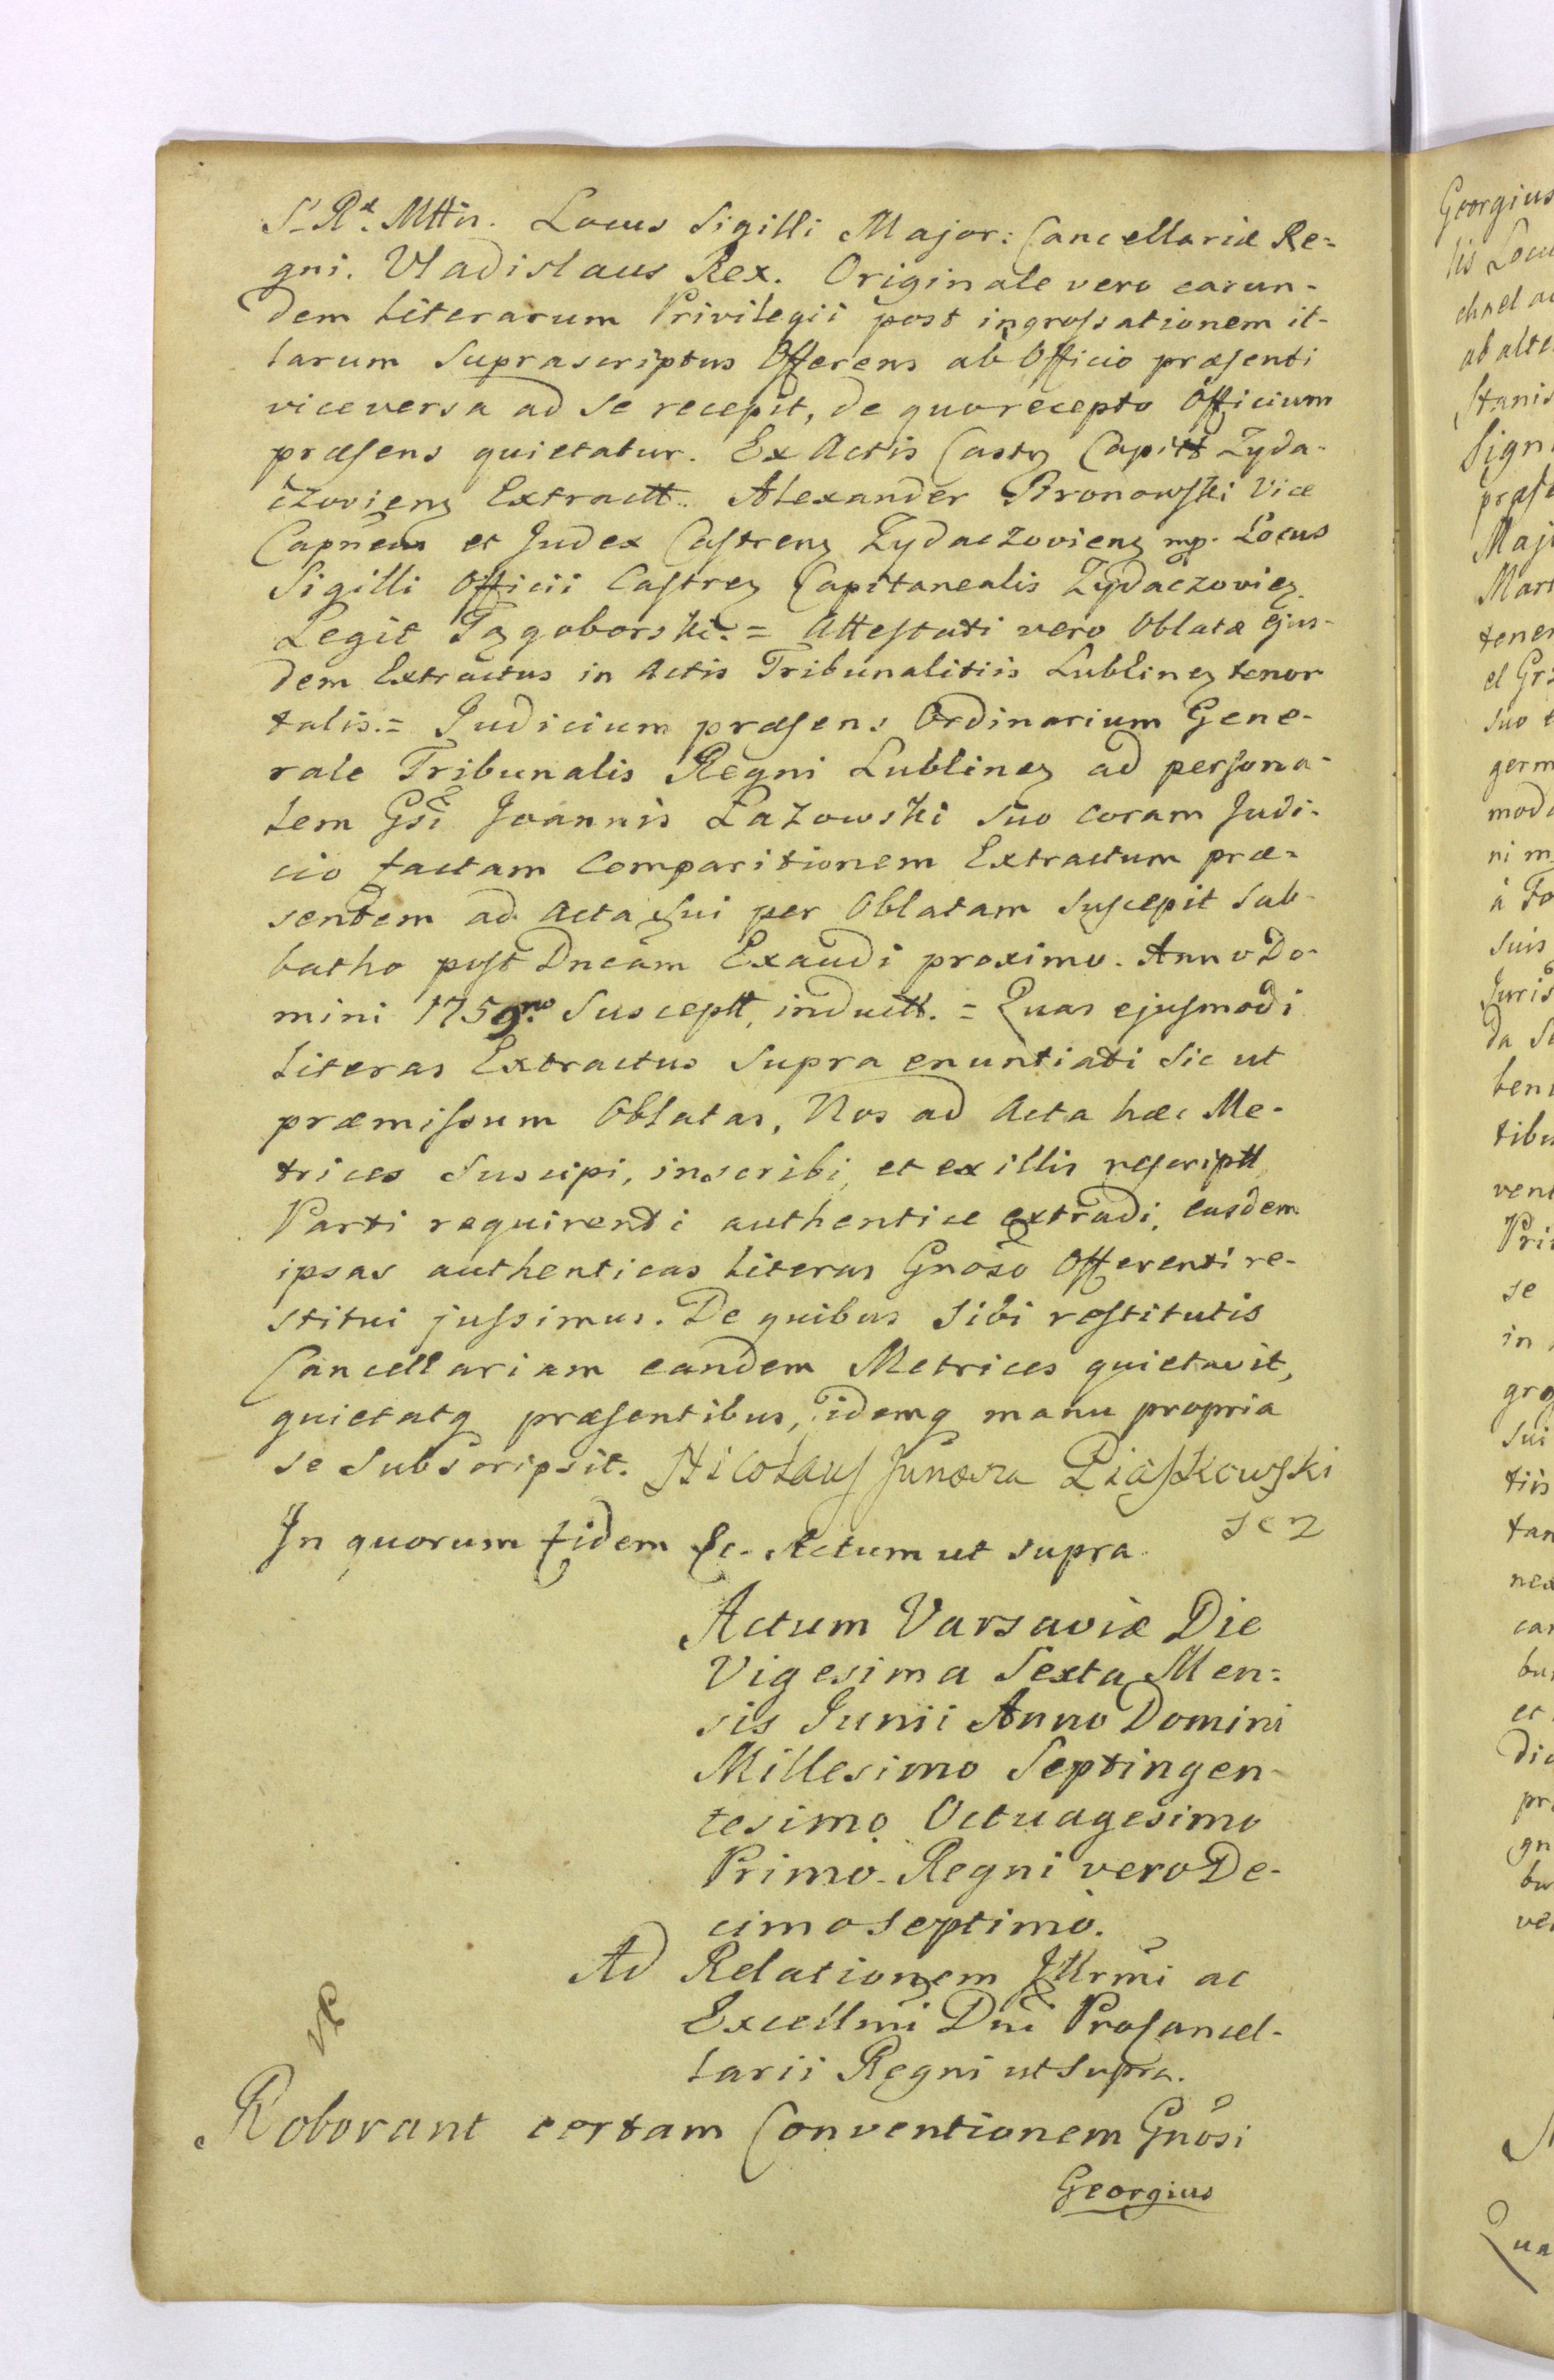 S. Rx. Mttis. Locus Sigilli Major: Cancellariæ Re=
gni. Vladislaus Rex. Originale vero earun-
dem Literarum Privilegii post ingrossationem il-
larum Suprascriptus Offerens ab Officio præsenti
viceversa ad se recepit, de quo recepto Officium
præsens quietatur. Ex Actis Castr Capitt Zyda-
czovien Extractt. Alexander Bronowski Vice
Capneus et Judex Castren Zydaczovien mp. Locus
Sigilli Officii Castren Capitanealis Zydaczovien
Legit Tęgoborski. = Attestati vero Oblatæ ejus-
dem Extractus in Actis Tribunalitiis Lublinen tenor
talis. = Judicium præsens Ordinarium Gene-
rale Tribunalis Regni Lublinen ad persona-
lem Gsi Joannis Łazowski suo coram Judi-
cio factam Comparitionem Extractum præ=
sentem ad Acta sui per Oblatam suscepit Sab-
batho post Dncam Exaudi proximo. Anno Do-
mini 1759no Susceptt, inductt. = Quas ejusmodi
Literas Extractus Supra enuntiati Sic ut
præmissum Oblatas, Nos ad Acta hæc Me-
trices Suscipi, inscribi, et ex illis rescriptt
Parti requirenti authentice extradi, easdem
ipsas authenticas Literas Gnoso Offerenti re-
stitui jussimus. De quibus Sibi restitutis
Cancellariam eandem Metrices quietavit,
quietatq præsentibus, idemq manu propria
se Subscripsit. Nicolaus Junosza Piaskowski
In quorum fidem &c. Actum ut supra.
Actum Varsaviæ Die
Vigesima Sexta Men=
sis Junii Anno Domini
Millesimo Septingen-
tesimo Octuagesimo
Primo. Regni vero De-
cimo septimo.
Ad Relationem Illrmi ac
Excellmi Dni Procancel-
larii Regni ut Supra.
Roborant certam Conventionem Gnosi
Georgius
Georgius
ab alte